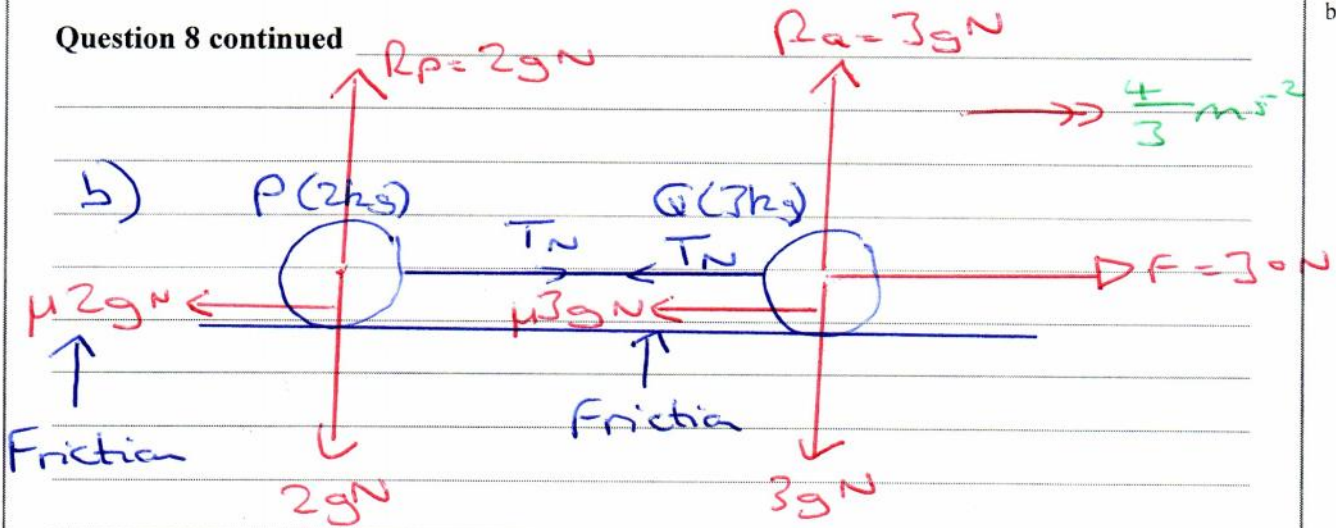 Question 8 continued
b
Rp = 2gN
RQ = 3gN
4/3 ms⁻²
b)
P(2kg)
Q(3kg)
TN
TN
F = 30N
μ2gN
μ3gN
Friction
Friction
2gN
3gN